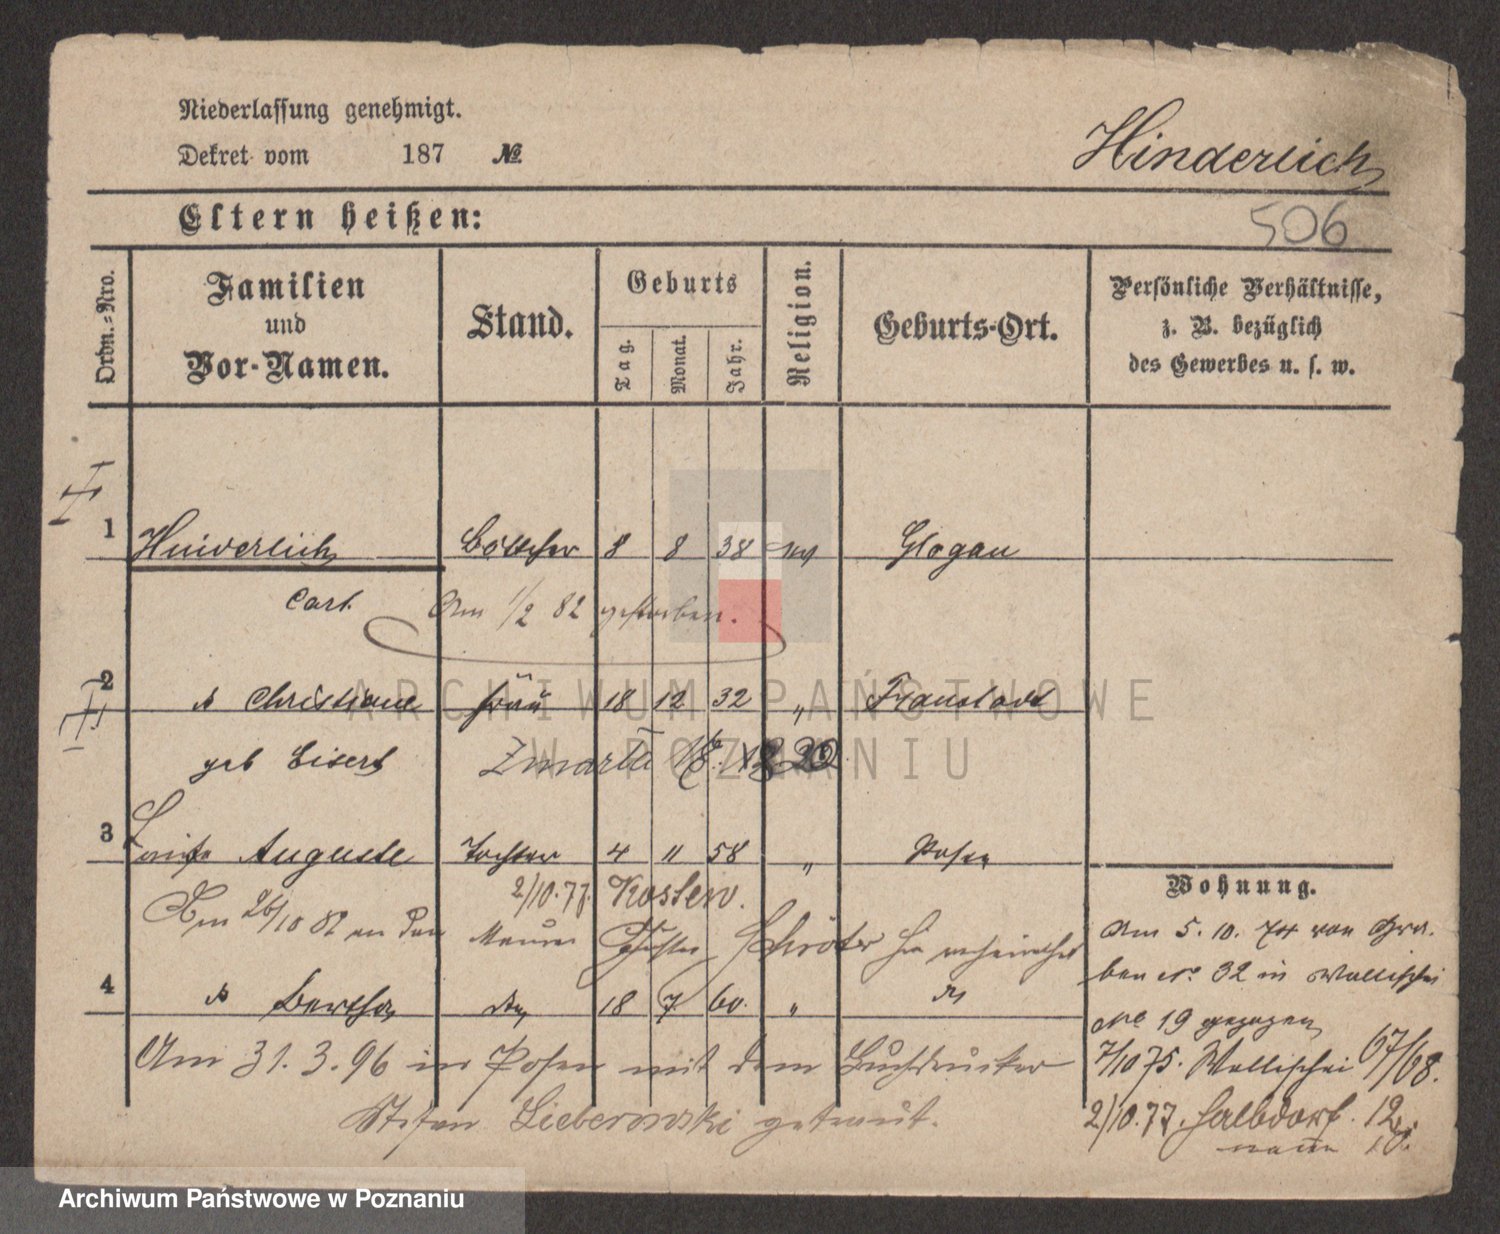 Niederlassung genehmigt.
Dekret vom 187 №
Hinderlich
Eltern heißen:
506
Ordn.-Nro.
Familien
und
Vor-Namen.
Stand.
Geburts
Tag.
Monat.
Jahr.
Religion.
Geburts-Ort.
Persönliche Verhältnisse,
z. B. bezüglich
des Gewerbes u. s. w.
1 Hinderlich Böttcher 8 8 38 ev Glogau
Carl Am 1/2 82 gestorben.
2 " Christiane Frau 18 12 32 " Fraustadt
geb Eisert Zmarła
3 Luise Auguste Tochter 4 11 58 " Posen
2/10.77. Kosten.
Am 26/10 82 an den Maurer Schröter verheirathet
4 " Bertha 18 7 60. "
Am 31.3.96 in Posen mit dem Buchdrucker
Stefan getraut.
Wohnung.
Am 5. 10. 74 von Gra-
ben No. 32 in Wallischei
No 19 gezogen
7/10 75. Wallischei 67/68.
2/10.77. Halbdorf 12
ARCHIWUM PAŃSTWOWE
W POZNANIU
Archiwum Państwowe w Poznaniu